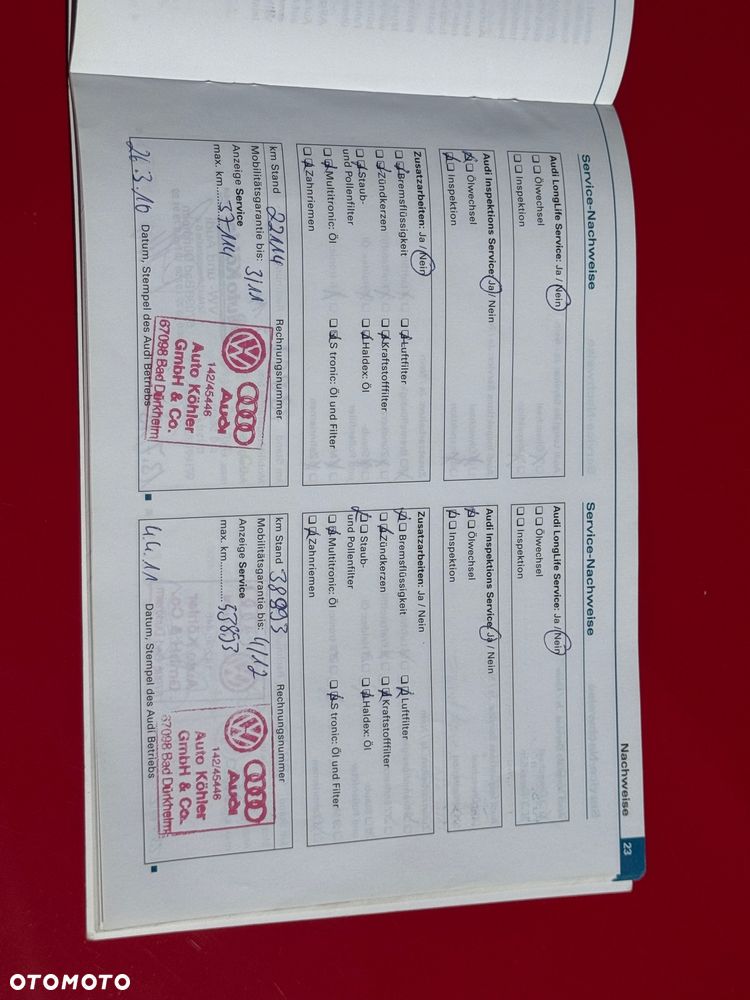 Nachweise 23
Service-Nachweise
Audi LongLife Service: Ja / Nein
Ölwechsel
Inspektion
Audi Inspektions Service: Ja / Nein
Ölwechsel
Inspektion
Zusatzarbeiten: Ja / Nein
Bremsflüssigkeit
Luftfilter
Zündkerzen
Kraftstofffilter
Staub-
und Pollenfilter
Haldex: Öl
Multitronic: Öl
S tronic: Öl und Filter
Zahnriemen
km Stand 22114
Rechnungsnummer
Mobilitätsgarantie bis: 3/11
Anzeige Service
max. km......37114
Audi
142/45446
Auto Köhler
GmbH & Co.
67098 Bad Dürkheim
26.3.10 Datum, Stempel des Audi Betriebs
Service-Nachweise
Audi LongLife Service: Ja / Nein
Ölwechsel
Inspektion
Audi Inspektions Service: Ja / Nein
Ölwechsel
Inspektion
Zusatzarbeiten: Ja / Nein
Bremsflüssigkeit
Luftfilter
Zündkerzen
Kraftstofffilter
Staub-
und Pollenfilter
Haldex: Öl
Multitronic: Öl
S tronic: Öl und Filter
Zahnriemen
km Stand 38893
Rechnungsnummer
Mobilitätsgarantie bis: 4/12
Anzeige Service
max. km............53893
Audi
142/45446
Auto Köhler
GmbH & Co.
67098 Bad Dürkheim
4.4.11 Datum, Stempel des Audi Betriebs
OTOMOTO